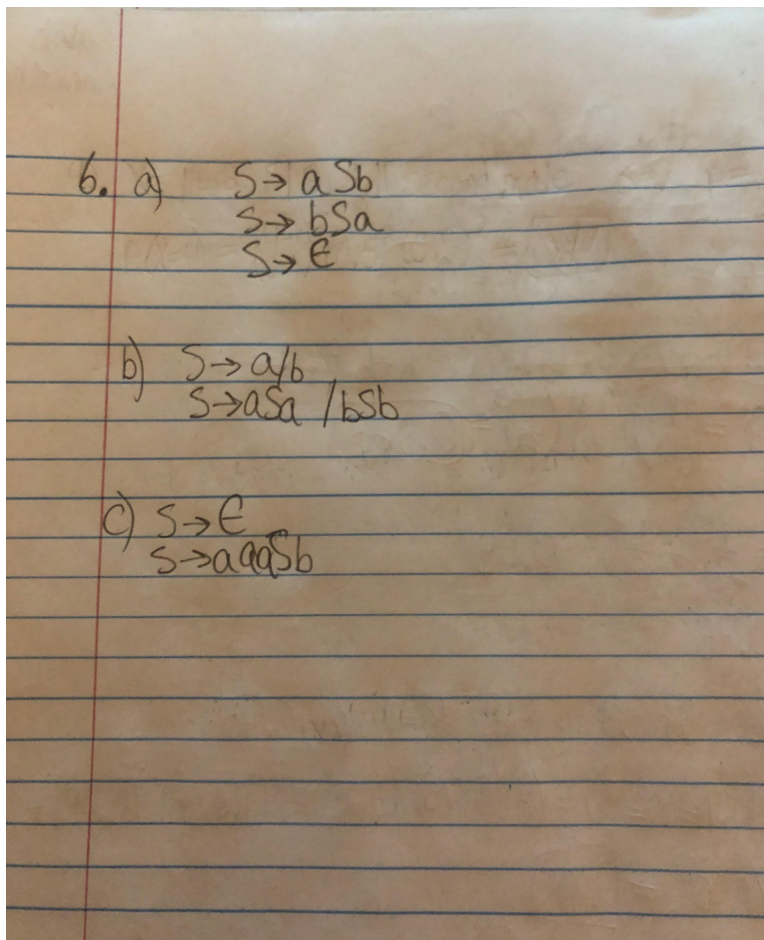 6. a) S→ aSb
S→ bSa
S→ Є
b) S→ a/b
S→aSa /bSb
c) S→Є
S→aaaSb